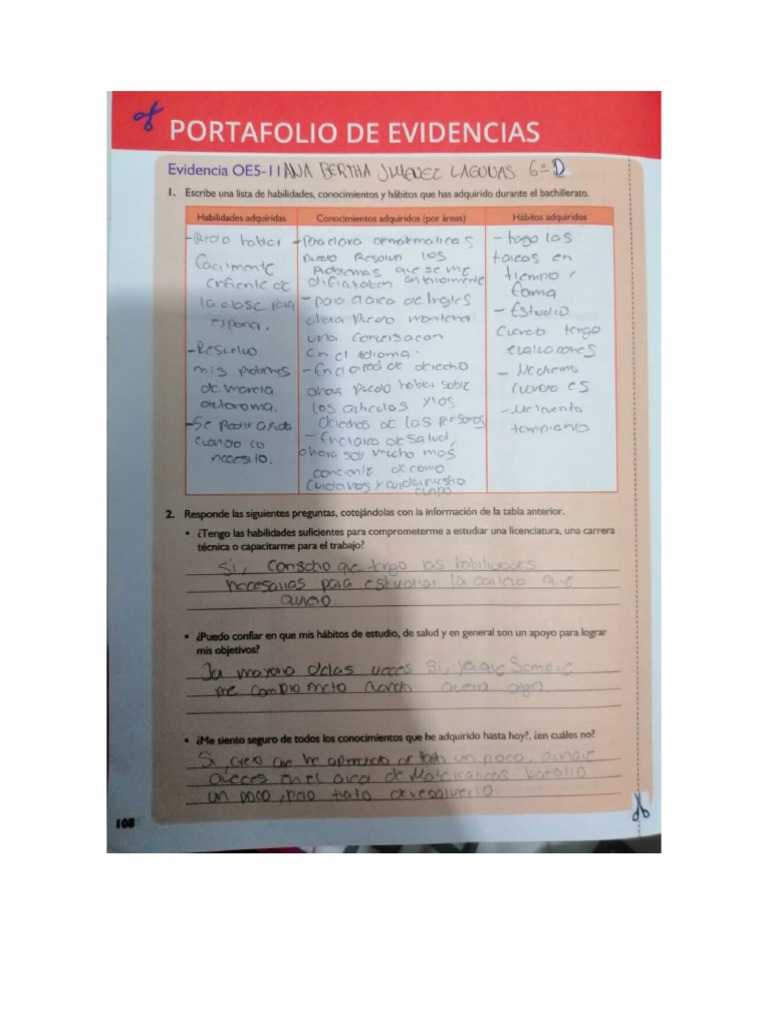 PORTAFOLIO DE EVIDENCIAS
Evidencia OE5-11 ANA BERTHA JIMENEZ LAGUNAS 6º D
1. Escribe una lista de habilidades, conocimientos y hábitos que has adquirido durante el bachillerato.
Habilidades adquiridas
- Puedo hablar
Facilmente
enfrente de
la clase para
exponer.
- Resuelvo
mis problemas
de manera
autonoma.
- Se pedir ayuda
cuando lo
necesito.
Conocimientos adquiridos (por áreas)
matematicas
puedo Resolver los
Problemas que se me
dificultaban anteriormente
- para el area de Ingles
ahora puedo mantener
una conversacion
en el idioma.
- En el area de derecho
ahora puedo hablar sobre
los articulos y los
derechos de las personas
- En el area de salud,
ahora soy mucho mas
conciente de como
cuidarnos y cuidar nuestro
cuerpo
Hábitos adquiridos
- hago las
tareas en
tiempo y
forma
- Estudio
cuando tengo
evaluaciones
- Me duermo
cuando es
- Me levanto
temprano
2. Responde las siguientes preguntas, cotejándolas con la información de la tabla anterior.
• ¿Tengo las habilidades suficientes para comprometerme a estudiar una licenciatura, una carrera
técnica o capacitarme para el trabajo?
Si, que tengo las habilidades
necesarias para estudiar la carrera que
quiero.
• ¿Puedo confiar en que mis hábitos de estudio, de salud y en general son un apoyo para lograr
mis objetivos?
la mayoria de las veces Si, ya que Siempre
me comprometo cuando quiero algo
• ¿Me siento seguro de todos los conocimientos que he adquirido hasta hoy?, ¿en cuáles no?
Si, creo que he aprendido de todo un poco, aunque
aveces en el area de Matematicas batallo
un poco, pero trato de resolverlo.
108